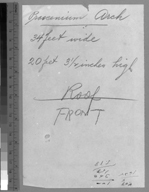 Proscenium Arch
34 feet wide
20 feet 3½ inches high
Roof
FRONT